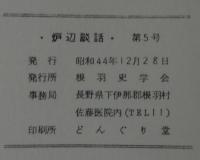 ・炉辺談話・ 第5号
発行 昭和44年12月28日
発行所 根羽史学会
事務局 長野県下伊那郡根羽村
佐藤医院内(TEL11)
印刷所 どんぐり堂